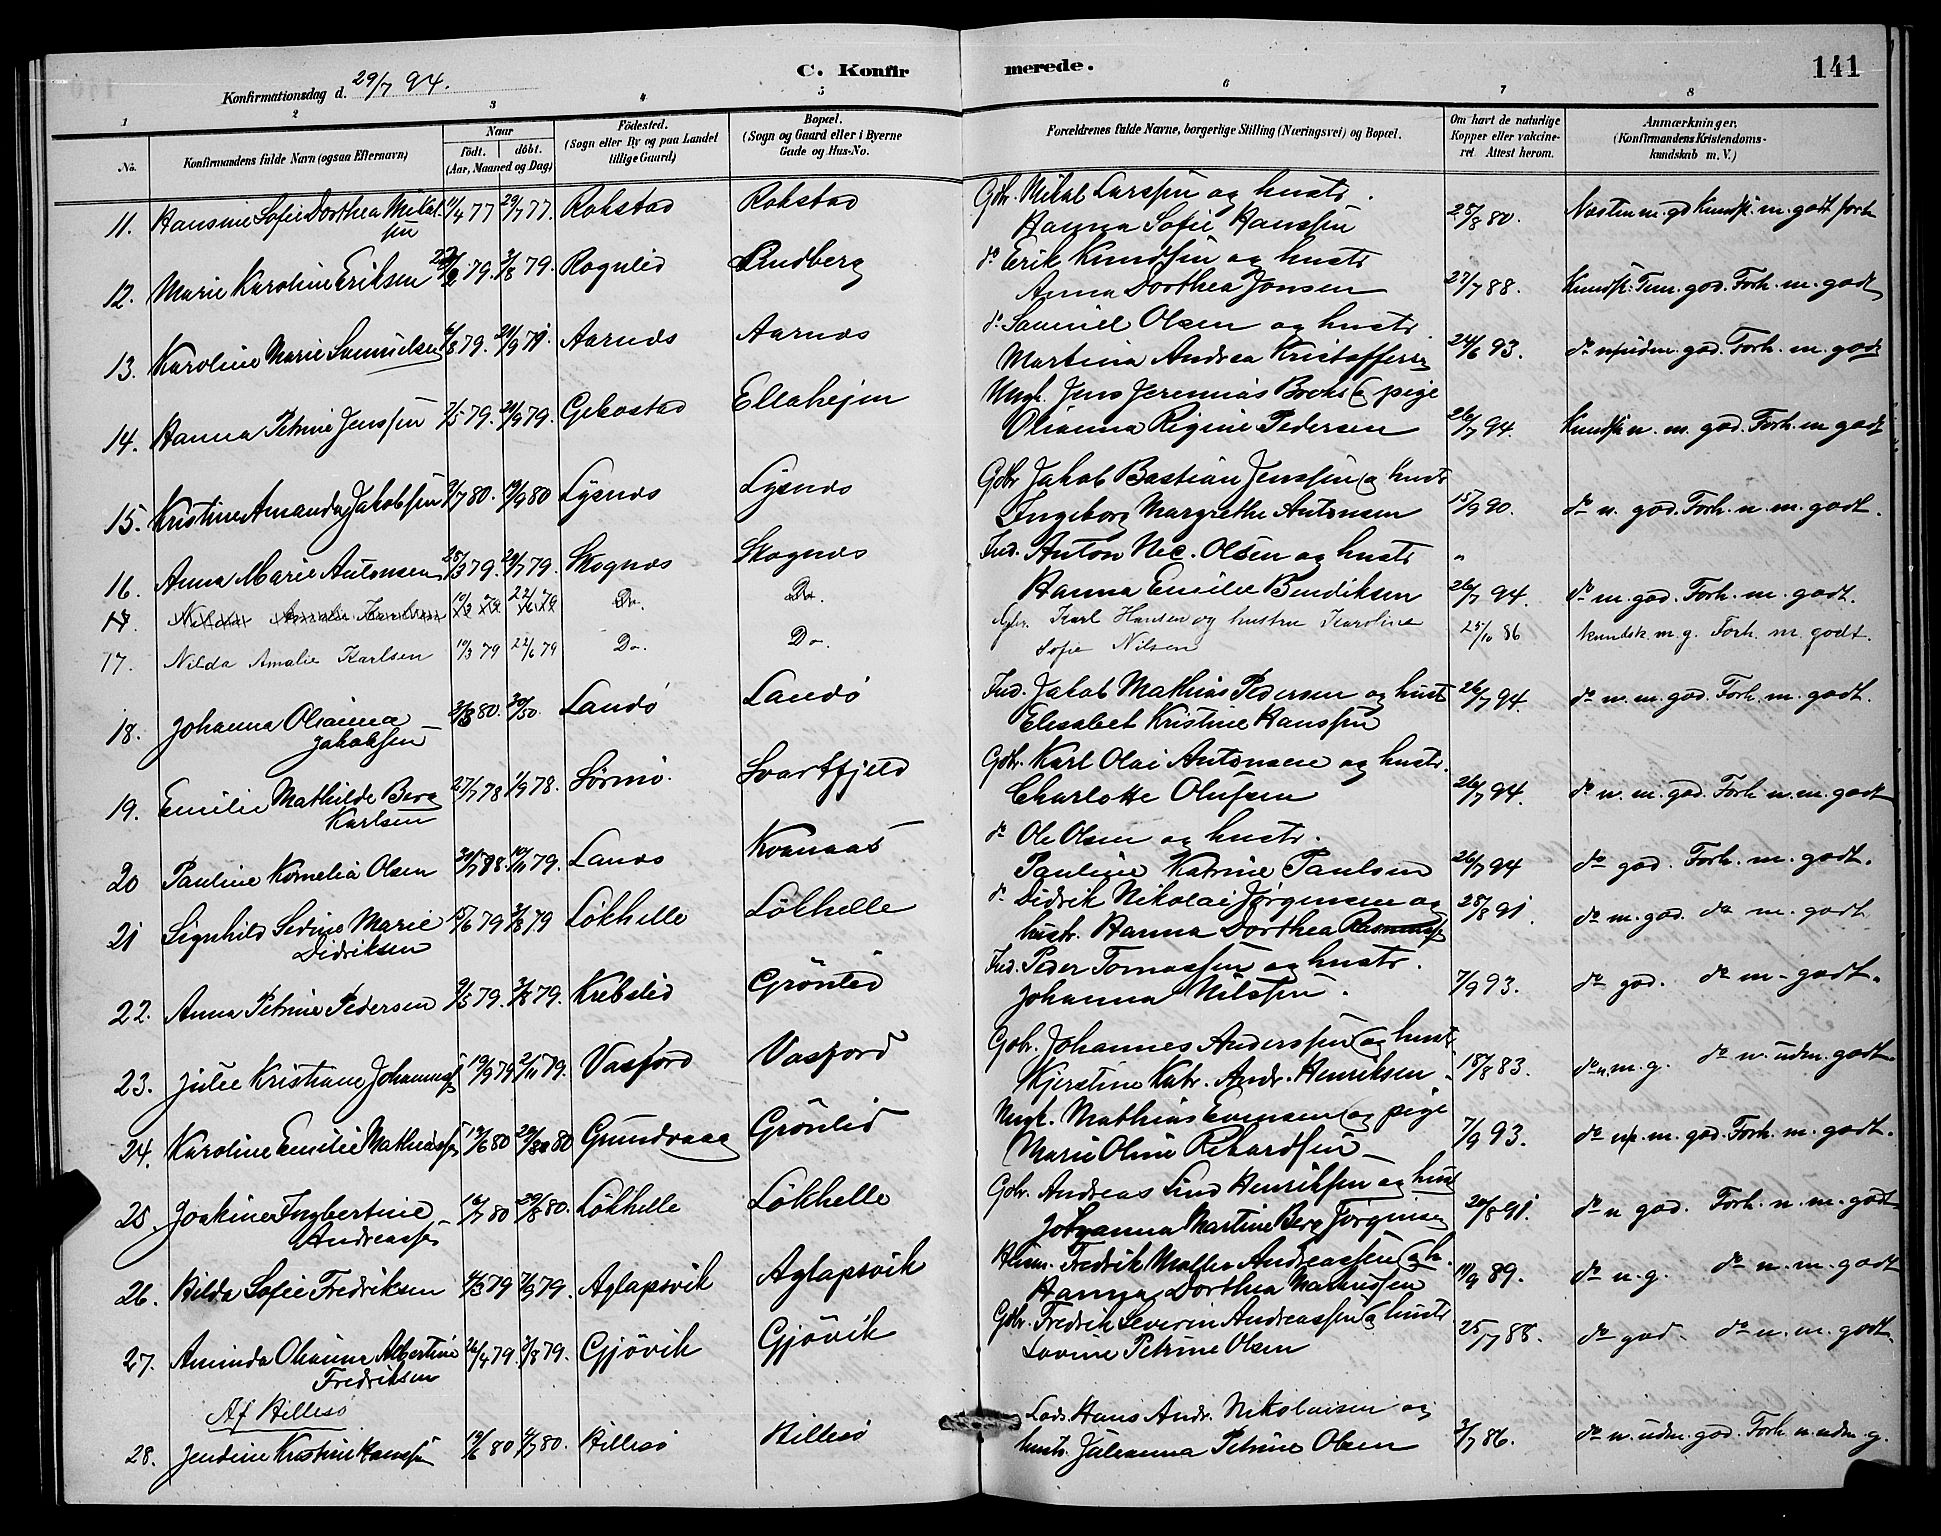 141
C. Konfirmerede.
Konfirmationsdag d. 29/7 94.
1 2 3 4 5 6 7 8
No. Konfirmandens fulde Navn (ogsaa Efternavn) Naar født. døbt. (Aar, Maaned og Dag) Fødested. (Sogn eller By og paa Landet tillige Gaard) Bopæl. (Sogn og Gaard eller i Byerne Gade og Hus-No. Forældrenes fulde Navne, borgerlige Stilling (Næringsvei) og Bopæl. Om havt de naturlige Kopper eller vaccineret Attest herom. Anmærkninger. (Konfirmandens Kristendomskundskab m. V.)
11. Hansine Sofie Dorthea Mikalsen 11/4 77 29/7 77. Rokstad Rokstad Gbr. Mikal Larssen og hustr. Hanna Sofie Hanssen 25/8 80. Næsten m. gd Kundsk. m. godt forh
12. Marie Karoline Eriksen 79. 3/8 79. Rognlid Lindberg do Erik Knudsen og hustr Anna Dorthea Jonsen 27/7 88. Kundsk. Tem. god. Forh. m. godt
13. Karoline Marie Samuelsen 79. 79. Aarnes Aarnes do Samuel Olsen og hustr. Martina Andrea Kristoffersen 24/6 93. do god. Forh. m. godt
14. Hanna Petrine Jenssen 7/5 79. 79. Gibostad Ellahejen Ungk. Jens Jeremias Brox & pige Olianna Rigine Pedersen 26/7 94. Kundsk n. m. god. Forh. m godt
15. Kristine Amanda Jakobsen 80. 80 Lysnes Lysnes Gbr Jakob Bastian Jenssen og hustr Ingeborg Margrethe Antonsen 15/9 90. do n. god. Forh. n. m. godt.
16. Anna Marie Antonsen 25/3 79. 20/7 79. Skognes Skognes Ind. Anton Nic. Olsen og hustr Hanna Emilie Bendiksen 26/7 94. do m. god. Forh. m. godt.
17. Nilda Amalie Karlsen 10/3 79 22/6 79 Do. Do.
17. Nilda Amalie Karlsen 10/3 79 22/6 79 Do. Do. Gbr. Karl Hansen og hustru Karoline Sofie Nilsen 25/10 86 kundsk m. g. Forh. m. godt.
18. Johanna Olianna Jakobsen 80. Landö Landö Ind. Jakob Mathias Pedersen og hustr Elisabet Kristine Hanssen 26/7 94. do n. m. god. Forh. m. godt.
19. Emilie Mathilde Berg Karlsen 27/7 78 1/9 78. Sörmo. Svartfjeld Gbr. Karl Olai Antonsen og hustr. Charlotte Olufsen 26/7 94. do n. m. god. Forh n. m. godt
20 Pauline Kornelia Olsen 10/11 79. Landö Kvannaas do Ole Olsen og hustr. Pauline Katrine Paulsen 26/7 94 do god. Forh. m. godt.
21 Signhild Sedine Marie Didriksen 15/6 79 3/8 79 Lökhelle Lökhelle do Didrik Nikolai Jørgensen og hustr. Hanna Dorthea 28/8 91. do m. god. do m. godt
22. Anna Petrine Pedersen 9/5 79. 3/8 79. Krebslid Grönlid Ind. Peder Tomassen og hustr. Johanna Nilssen. 7/9 93. do god. do m. godt.
23. Julie Kristiane Johanness 19/9 79 2/11 79. Vasjord Vasjord Gbr. Johannes Anderssen og hustr Kjerstine Katr. Andr. Henriksen 18/8 83. do n. m. g. do n. udm. godt
24. Karoline Emilie Mathiass 12/6 80 80 Gundvaag Grönlid Ungk. Mathias Evensen og pige Marie Oline Rikardsen 7/9 93. do m. god. Forh. m. godt.
25 Joakine Ingbertine Andreass 16/7 80 29/8 80. Lökhelle Lökhelle Gbr. Andreas Lind Henriksen og hust Johanna Martine Berg Jörginsen 20/8 91. do n god. Forh. n. m. godt.
26. Hilda Sofie Fredriksen 4/3 79 7/9 79. Aglapsvik Aglapsvik Husm. Fredrik Møller Andreassen og h. Hanna Dorthea Markussen 11/9 89. do n. g. do n. m. godt
27. Aminda Olianna Albertine Fredriksen 26/4 79. 3/8 79. Gjövik Gjövik Gbr. Fredrik Severin Andreassen og hustr Lovine Petrine Olsen 25/7 88. do god. do n. m. godt.
Af Hillesö
28. Jendine Kristine Hanssen 12/6 80 80. Hillesö Hillesö Lods Hans Andr. Nikolaisen og hustr. Julianna Petrine Olsen 3/7 86. do n. udm. god. Forh n. udm. g.